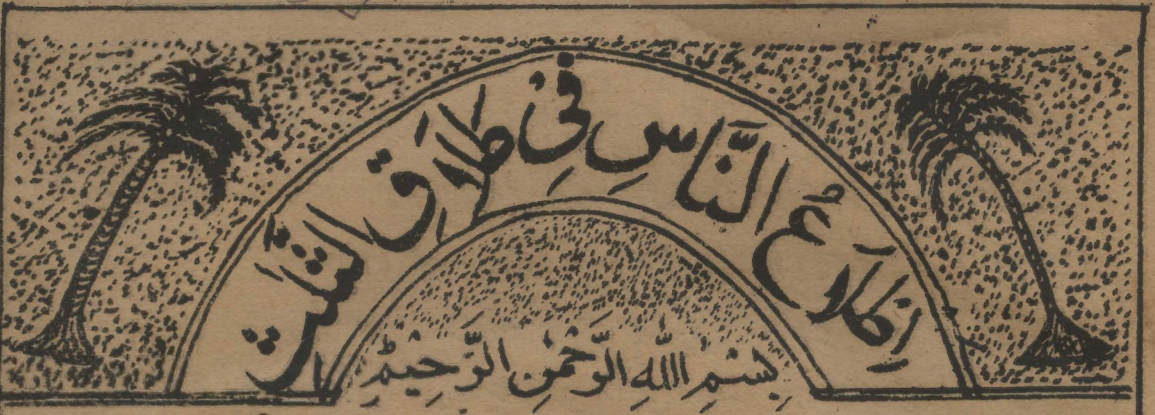 اِطَلَاعُ النَّاسِ فِیْ طَلَاقِ الثَّلٰثِ
بِسْمِ اللّٰهِ الرَّحْمٰنِ الرَّحِيْمِ